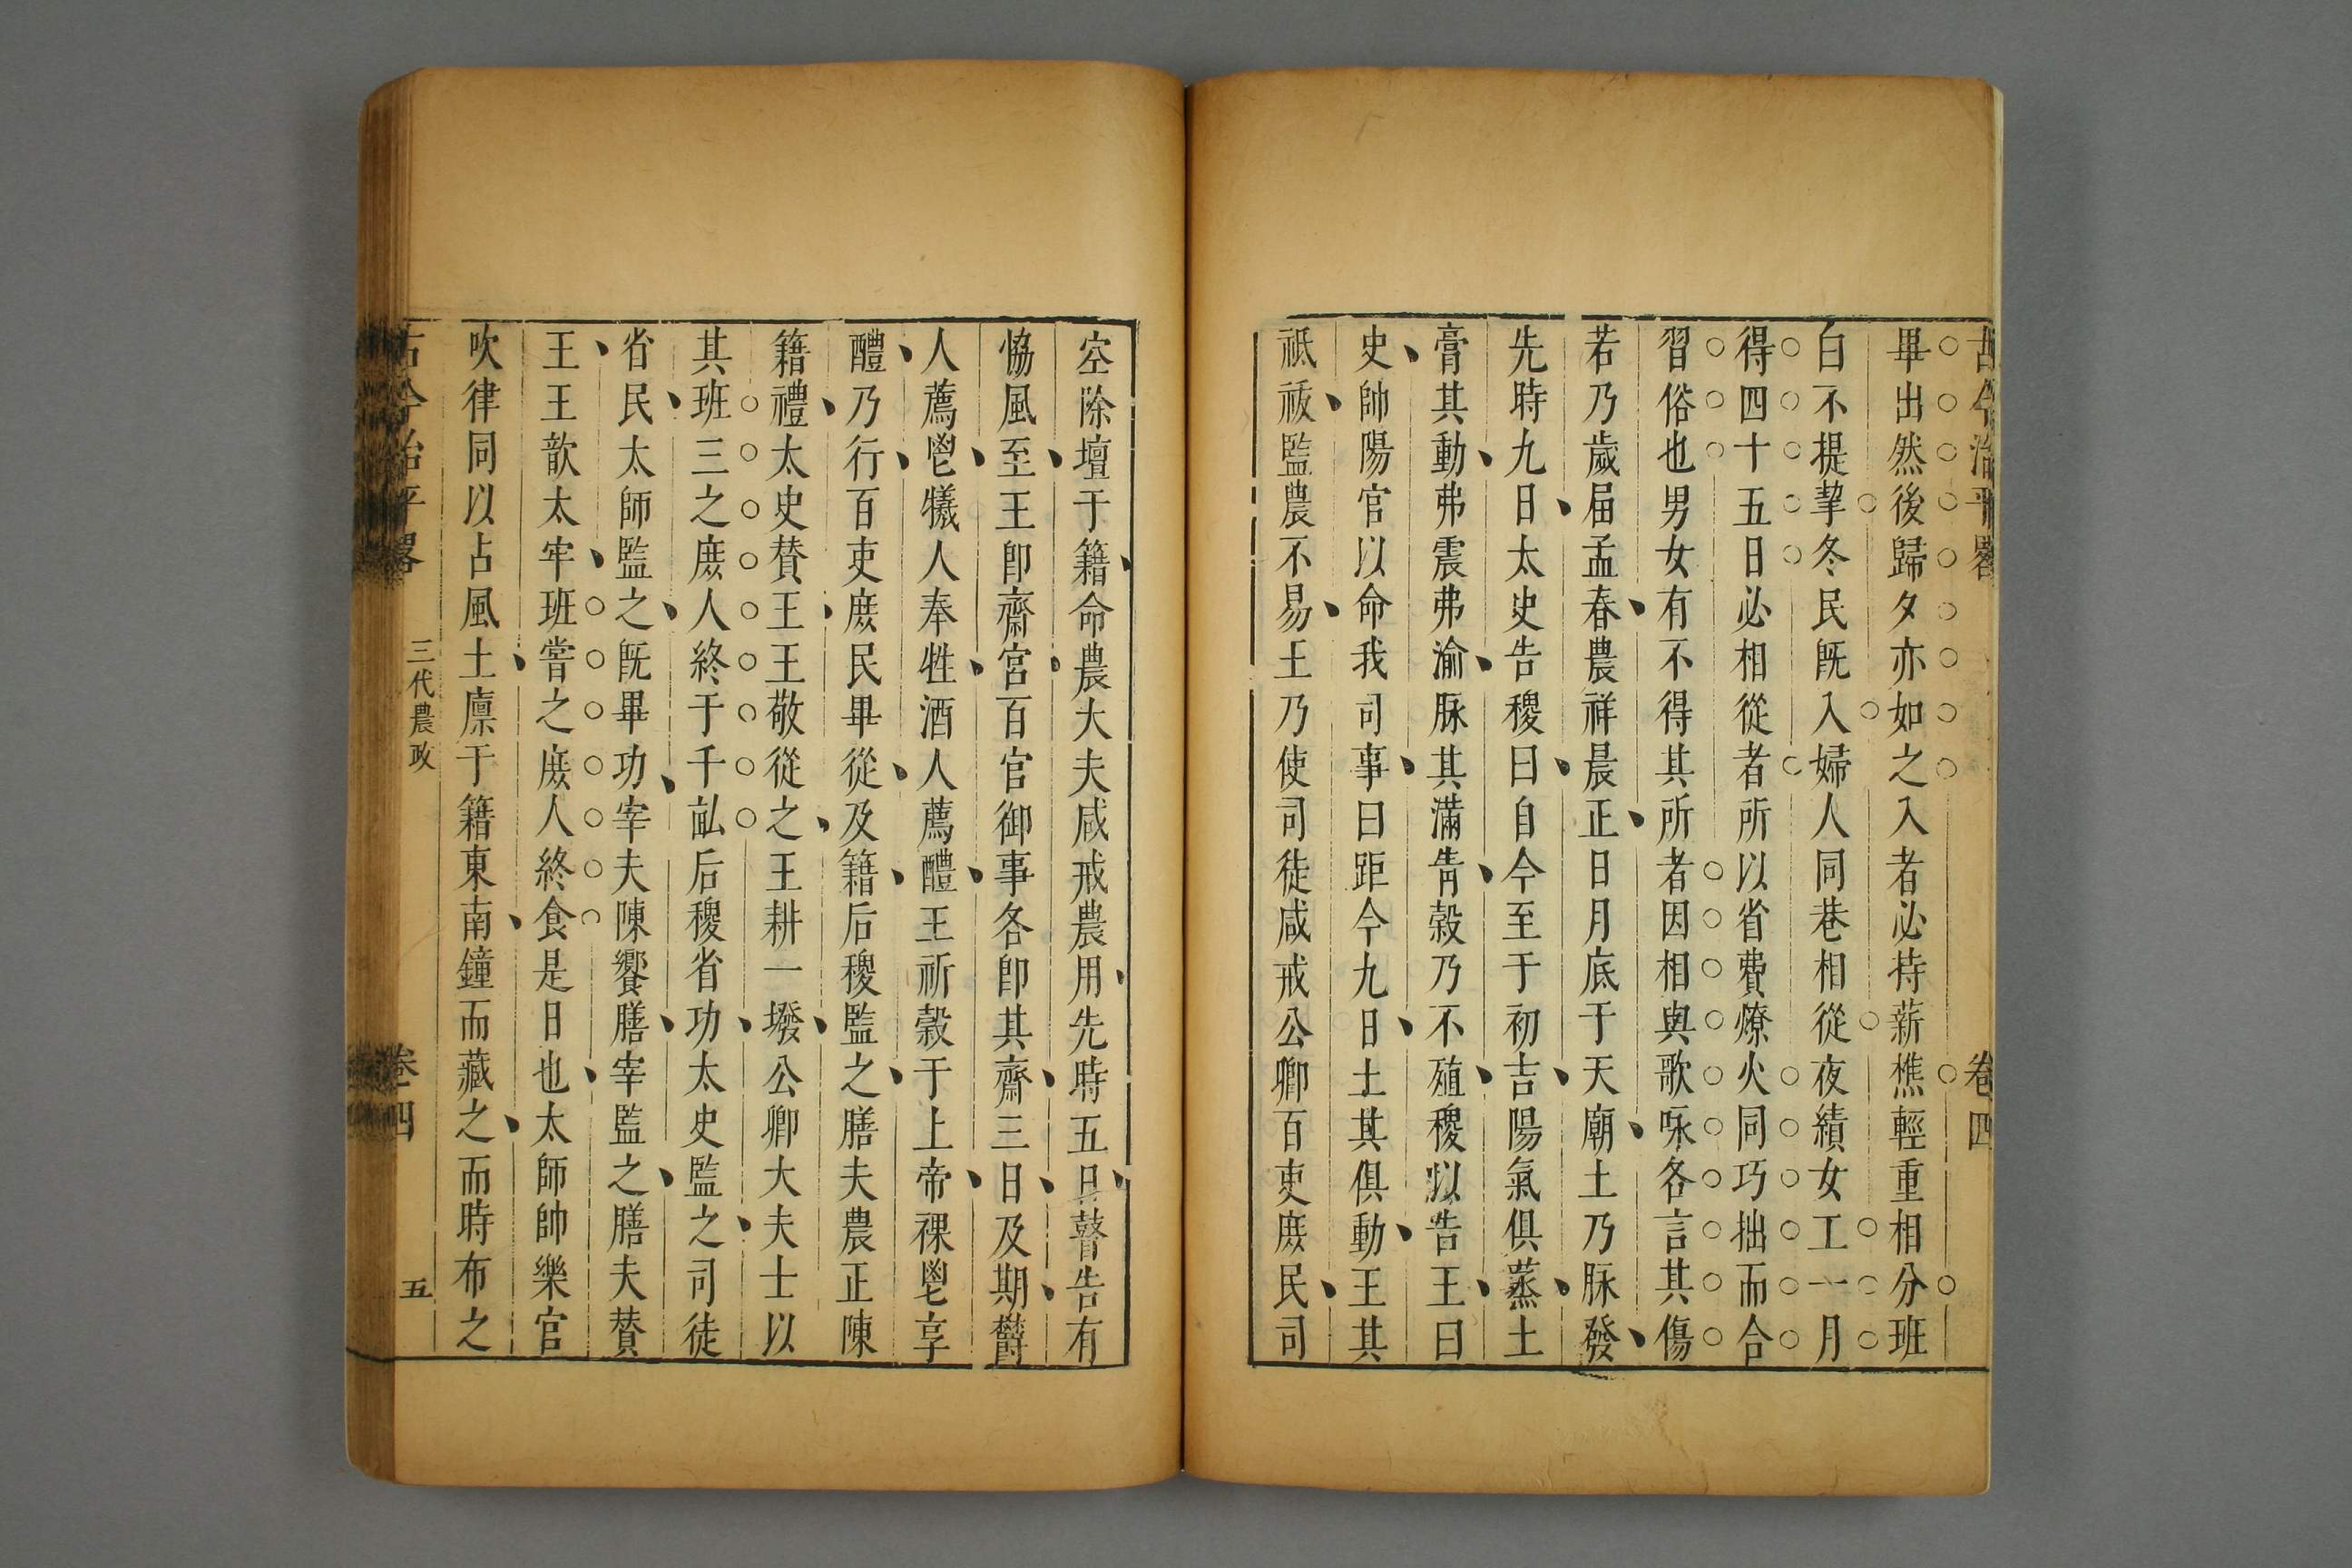 古今治平畧 卷四
畢出然後歸夕亦如之入者必持薪樵輕重相分班
白不提挈冬民既入婦人同巷相從夜績女工一月
得四十五日必相從者所以省費燎火同巧拙而合
習俗也男女有不得其所者因相與歌咏各言其傷
若乃歲届孟春農祥晨正日月底于天廟土乃脉發
先時九日太史告稷曰自今至于初吉陽氣俱蒸土
膏其動弗震弗渝脉其滿眚穀乃不殖稷以告王曰
史帥陽官以命我司事曰距今九日土其俱動王其
祗祓監農不易王乃使司徒咸戒公卿百吏庶民司
空除壇于籍命農大夫咸戒農用先時五日瞽告有
恊風至王卽齋宮百官御事各卽其齋三日及期欝
人薦鬯犧人奉牲酒人薦醴王祈穀于上帝祼鬯享
醴乃行百吏庶民畢從及籍后稷監之膳夫農正陳
籍禮太史賛王王敬從之王耕一墢公卿大夫士以
其班三之庶人終于千畝后稷省功太史監之司徒
省民太師監之既畢功宰夫陳饗膳宰監之膳夫賛
王王歆太牢班嘗之庶人終食是日也太師帥樂官
吹律同以占風土廪于籍東南鐘而藏之而時布之
古今治平畧 三代農政 卷四 五